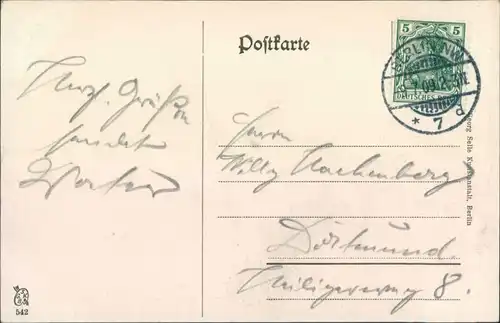 Postkarte
5 5
DEUTSCHES REICH
BERLIN NW
* 7 d
Herzl. Grüße
sendet
Walter
Herrn
Willy Hackenberg
Dortmund.
Heiligerweg 8.
Georg Selle Kunstanstalt, Berlin
542